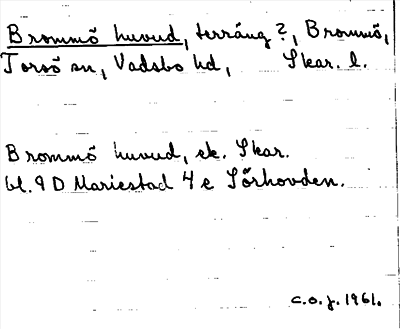 Brommö huvud, terräng?, Brommö,
Torsö sn, Vadsbo hd, Skar. l.
Brommö huvud, ek. Skar.
bl. 9 D Mariestad 4 e Sörhovden.
c.o.j. 1961.